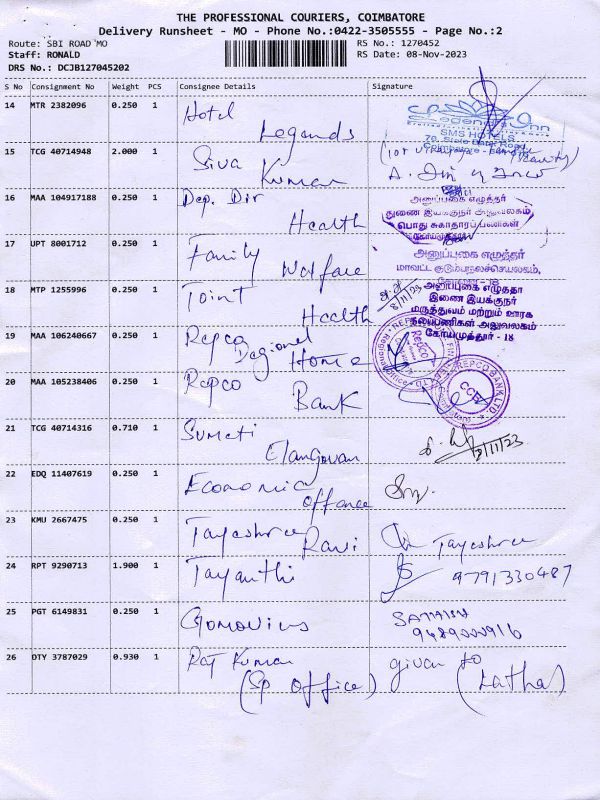 THE PROFESSIONAL COURIERS, COIMBATORE
Delivery Runsheet - MO - Phone No.:0422-3505555 - Page No.:2
Route: SBI ROAD MO
RS No.: 1270452
Staff: RONALD
RS Date: 08-Nov-2023
DRS No.: DCJB127045202
S No Consignment No Weight PCS Consignee Details Signature
14 MTR 2382096 0.250 1 Hotel Legands
SMS HOTELS
15 TCG 40714948 2.000 1 Siva Kumar
16 MAA 104917188 0.250 1 Dep. Dir Health
அனுப்புகை எழுத்தர்
துணை இயக்குநர் அலுவலகம்,
பொது சுகாதாரப்பணிகள்
17 UPT 8001712 0.250 1 Family Walfare
அனுப்புகை எழுத்தர்
மாவட்ட குடும்பநலச்செயலகம்,
18 MTP 1255996 0.250 1 Joint Health
8/11/23
இணை இயக்குநர்
மருத்துவம் மற்றும் ஊரக
நலப்பணிகள் அலுவலகம்
கோயமுத்தூர் - 18
19 MAA 106240667 0.250 1 Repco Regional Home
20 MAA 105238406 0.250 1 Repco Bank
REPCO BANK LTD.
21 TCG 40714316 0.710 1 Sumati Elangovan
8/11/23
22 EDQ 11407619 0.250 1 Economic Offance
23 KMU 2667475 0.250 1 Jayeshree Ravi Jayeshree
24 RPT 9290713 1.900 1 Jayanthi 9791330487
25 PGT 6149831 0.250 1
26 DTY 3787029 0.930 1 Raj Kumar (Sp Office) givan to (Latha)